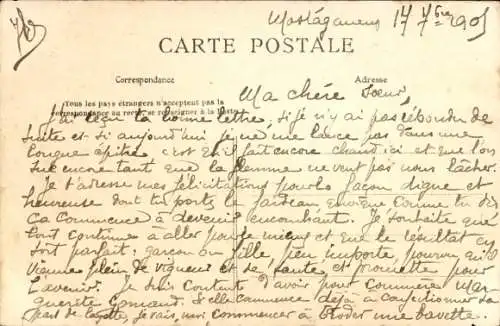 Mostaganem 17 7bre 1905
CARTE POSTALE
Correspondance
Adresse
Tous les pays étrangers n'acceptent pas la
correspondance au recto, se renseigner à la Poste
Ma chère Soeur,
J'ai reçu ta bonne lettre, si je n'y ai pas répondu de
suite et si aujourd'hui je ne me lance pas dans une
longue épitre, c'est qu'il fait encore chaud ici et que l'on
sue encore tant que la flemme ne veut pas nous lâcher.
Je t'adresse mes félicitations pour la façon digne et
heureuse dont tu portes le fardeau, quoique comme tu dis
ça commence à devenir encombant. Je souhaite que
tout continue à aller pour le mieux et que le résultat en
soit parfait; garçon ou fille, peu importe, pourvu qu'il
vienne plein de vigueur et de santé, et promette pour
l'avenir. Je suis content d'avoir pour commère Mar-
guerite. Si elle commence déjà à confectionner sa
part de layette, je vais, moi commencer à broder une bavette.